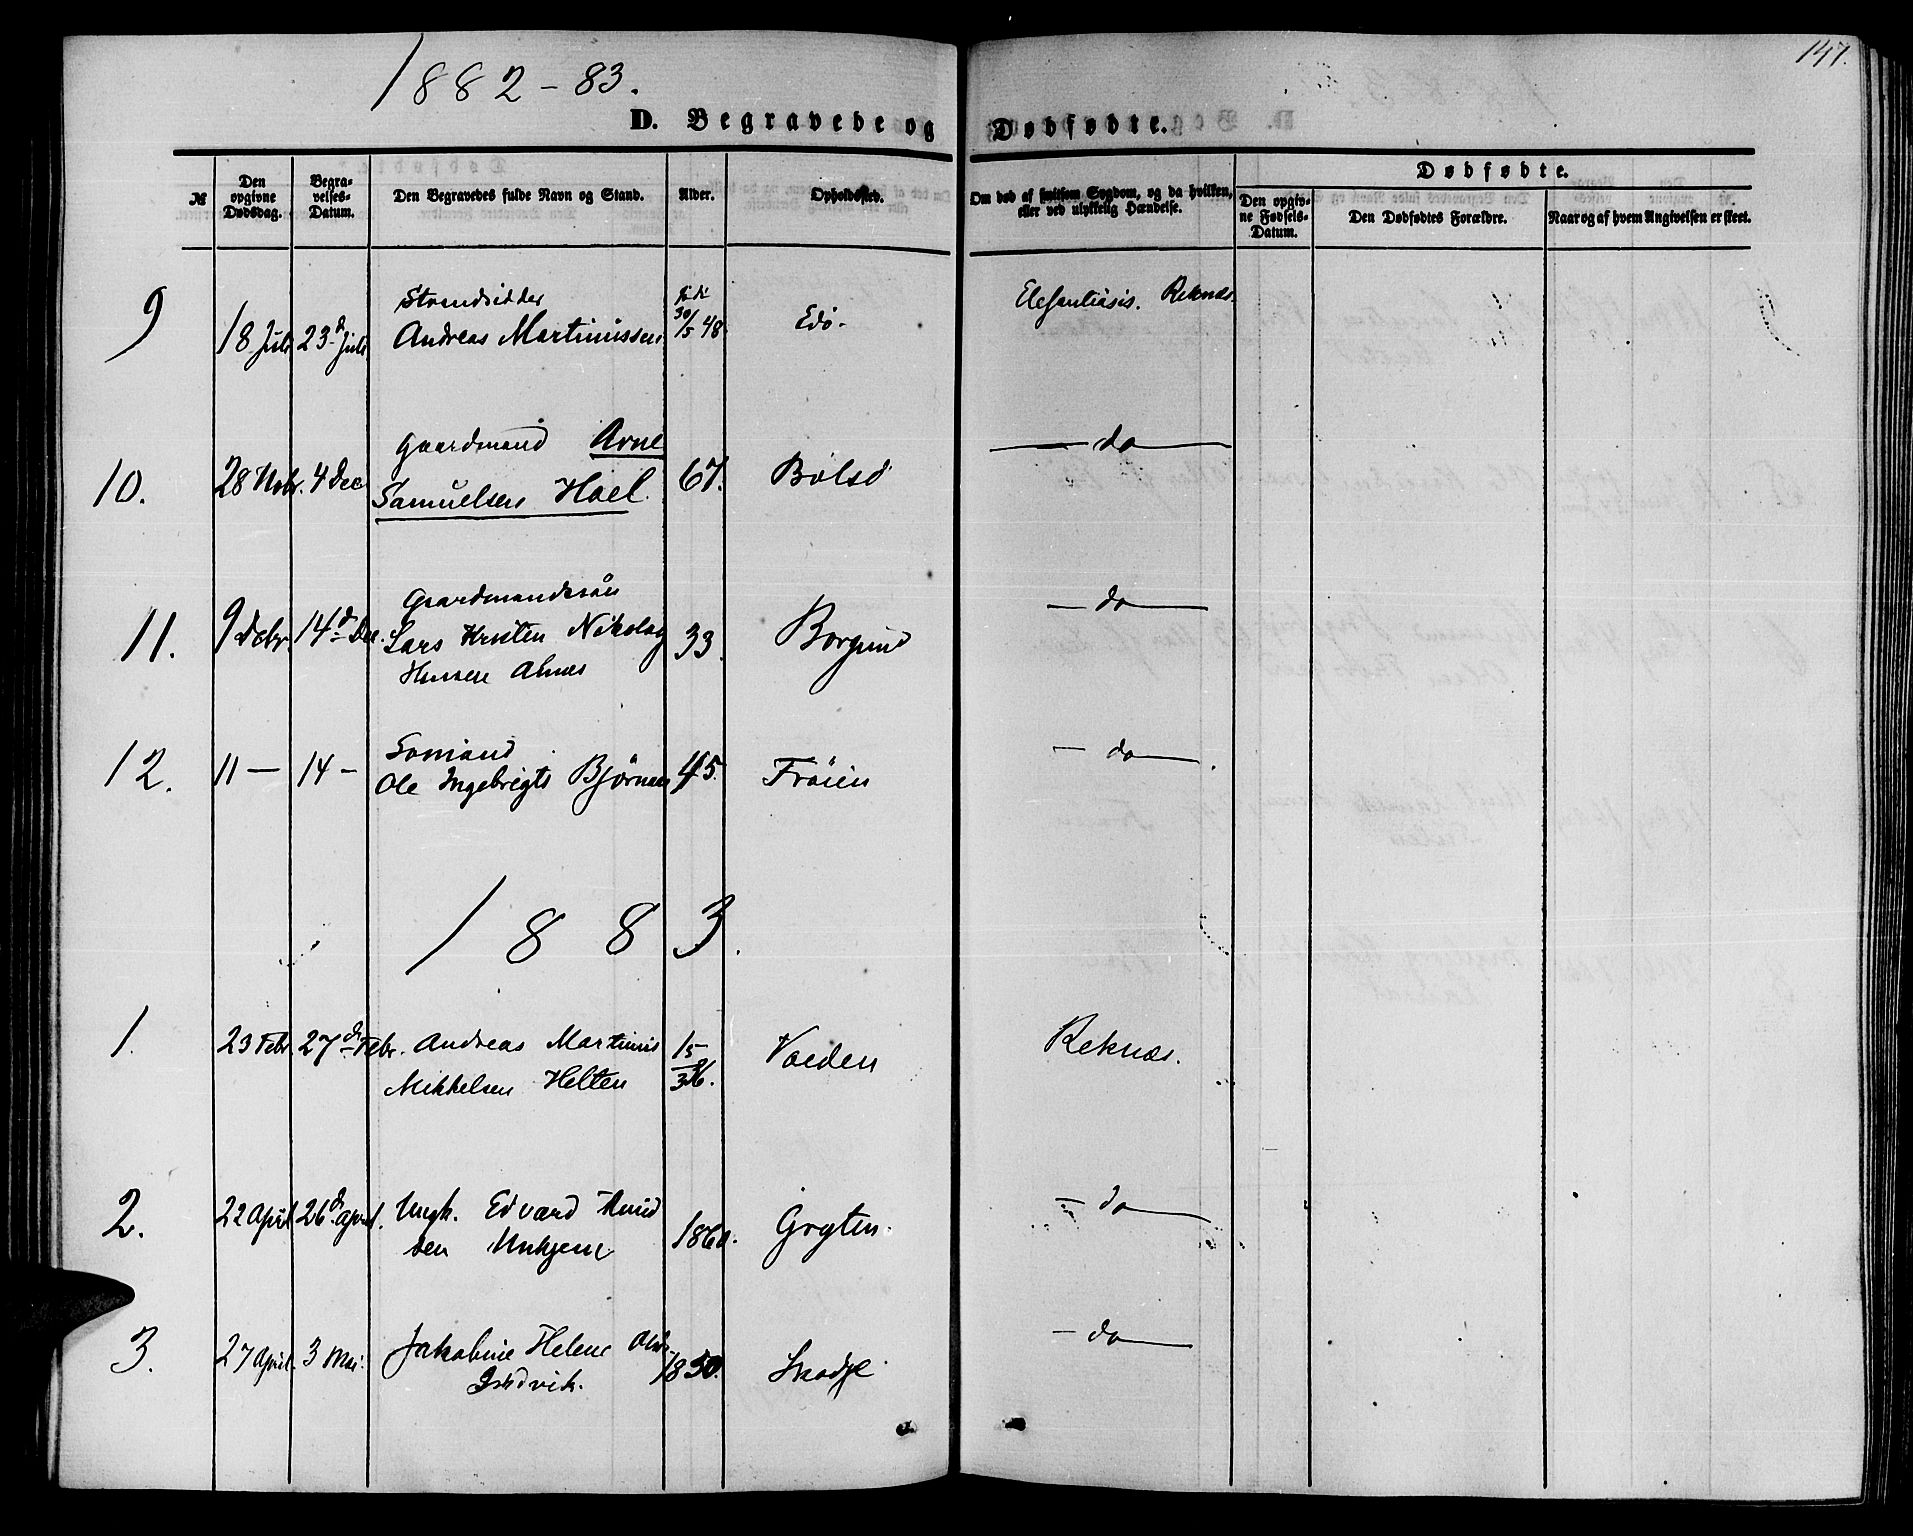 1882-83.
147.
D. Begravede og Dødfødte.
№
Den opgivne Dødsdag.
Begravelses-Datum.
Den Begravedes fulde Navn og Stand.
Alder.
Opholdssted.
Om død af smitsom Sygdom, og da hvilken, eller ved ulykkelig Hændelse.
Dødfødte.
Den opgivne Fødsels-Datum.
Den Dødfødtes Forældre.
Naar og af hvem Angivelsen er skeet.
9 18 Juli 23d Juli Strandsidder 30/5 48 Edø. Elefantiasis. Reknæs.
Andreas Martinussen
10. 28 Novbr. 4 Dec Gaardmand Arne 67. Bolsø – do –
Samuelsen Hoel.
11. 9 Debr. 14d Dec. Gaardmandssøn 33. Borgund – do –
Lars Kristen Nikolay
Hansen Alnæs
12. 11 – 14 – Sømand 45. Frøien – do – .
Ole Ingebrigts Bjørnen
1883.
1. 23 Febr. 27d Febr. Andreas Martinus 15/3 Voeden Reknæs.
Mikkelsen Helten
2. 22 April 26d April. Ungk. Edvard Amund Grytten. – do –
sen Unhjem 1860.
3. 27 April. 3 Mai. Jakobine Helene 1850. Skodje – do –